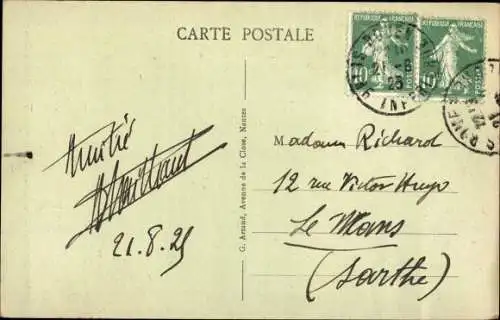 CARTE POSTALE
RÉPUBLIQUE FRANÇAISE
10
POSTES
RÉPUBLIQUE FRANÇAISE
10
POSTES
21-8
25
Amitié
21.8.25
G. Artaud, Avenue de la Close, Nantes
Madame Richard
12 rue Victor Hugo
Le Mans
(Sarthe)